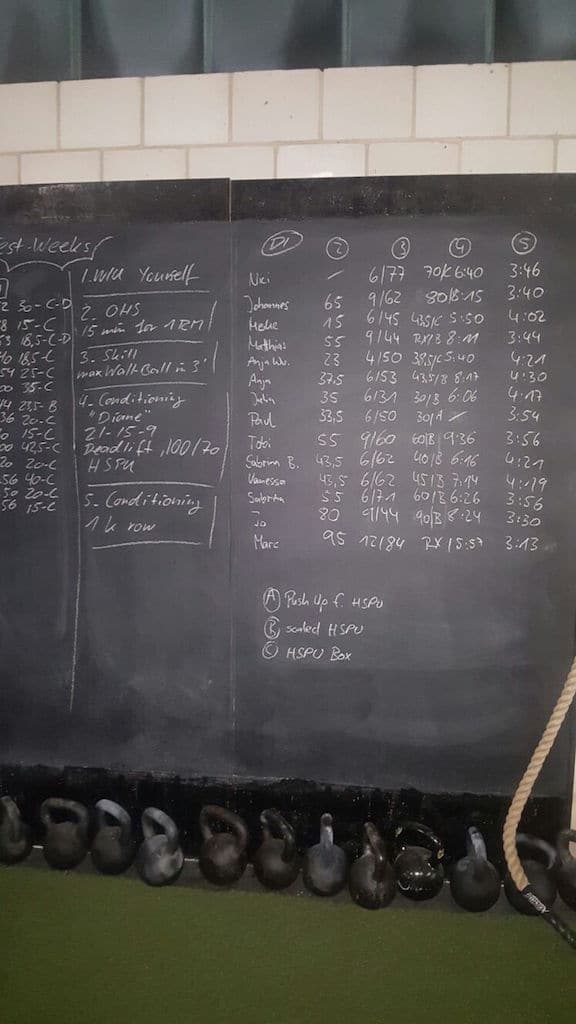 est-Weeks
30-C-D
15-C
18,5-C-D
18,5-C
25-C
35-C
23,5-B
20-C
15-C
42,5-C
20-C
40-C
20-C
15-C
1. WU Yourself
2. OHS
15 min for 1RM
3. Skill
max Wall Ball in 3'
4. Conditioning
"Diane"
21-15-9
Deadlift, 100/70
HSPU
5. Conditioning
1k row
DI 2 3 4 5
Nici / 6/77 70/C 6:40 3:46
Johannes 65 9/62 80/B 8:15 3:40
15 6/45 43,5/C 5:50 4:02
Matthias 55 9/44 RX/B 8:11 3:44
Anja Wu. 23 4/50 38,5/C 5:40 4:21
Anja 37,5 6/53 43,5/B 8:17 4:30
Julia 35 6/31 30/B 6:06 4:17
Paul 33,5 6/50 30/A / 3:54
Tobi 55 9/60 60/B 9:36 3:56
Sabrina B. 43,5 6/62 40/B 6:16 4:21
Vanessa 43,5 6/62 45/B 7:14 4:19
Sabrina 55 6/71 60/B 6:26 3:56
Jo 80 9/44 90/B 8:24 3:30
Marc 95 12/84 RX/5:57 3:13
A Push Up f. HSPU
B scaled HSPU
C HSPU Box